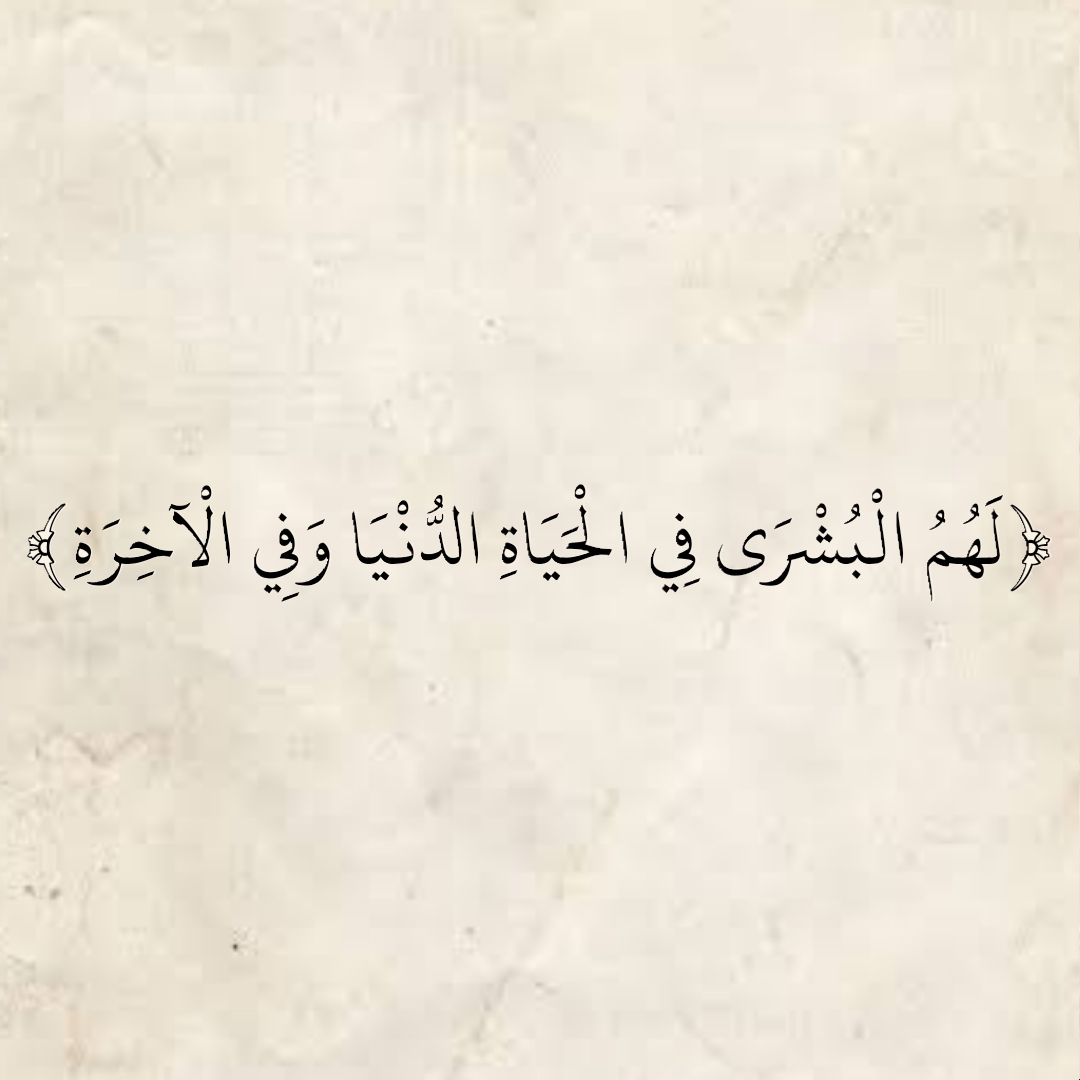 ﴿لَهُمُ الْبُشْرَى فِي الْحَيَاةِ الدُّنْيَا وَفِي الْآخِرَةِ﴾